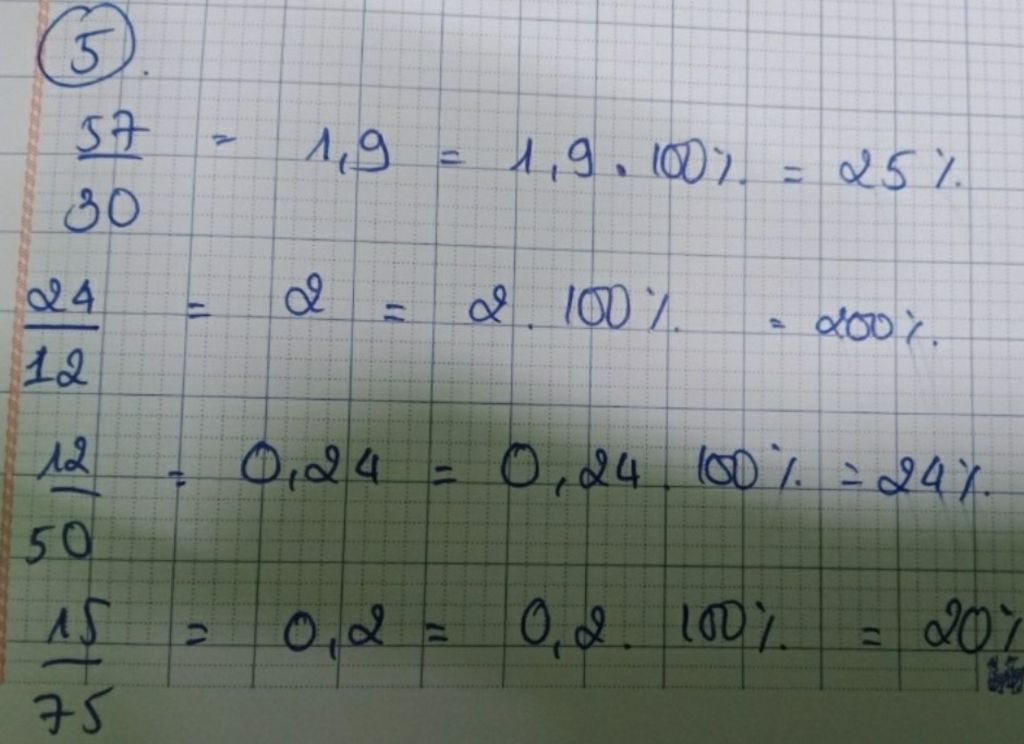 5.
57/30 = 1,9 = 1,9 . 100% = 25%.
24/12 = 2 = 2 . 100% = 200%.
12/50 = 0,24 = 0,24 . 100% = 24%.
15/75 = 0,2 = 0,2 . 100% = 20%